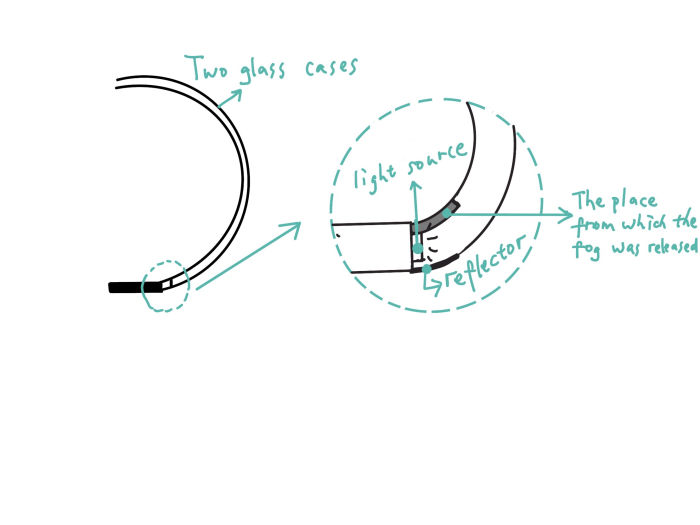 Two glass cases
light source
The place
from which the
fog was released
reflector